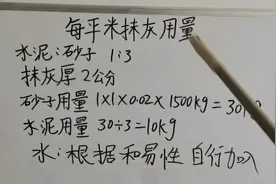 每平米抹灰用量
水泥:砂子 1:3
抹灰厚 2公分
砂子用量 1×1×0.02×1500kg=30
水泥用量 30÷3=10kg
水:根据和易性 自行加入